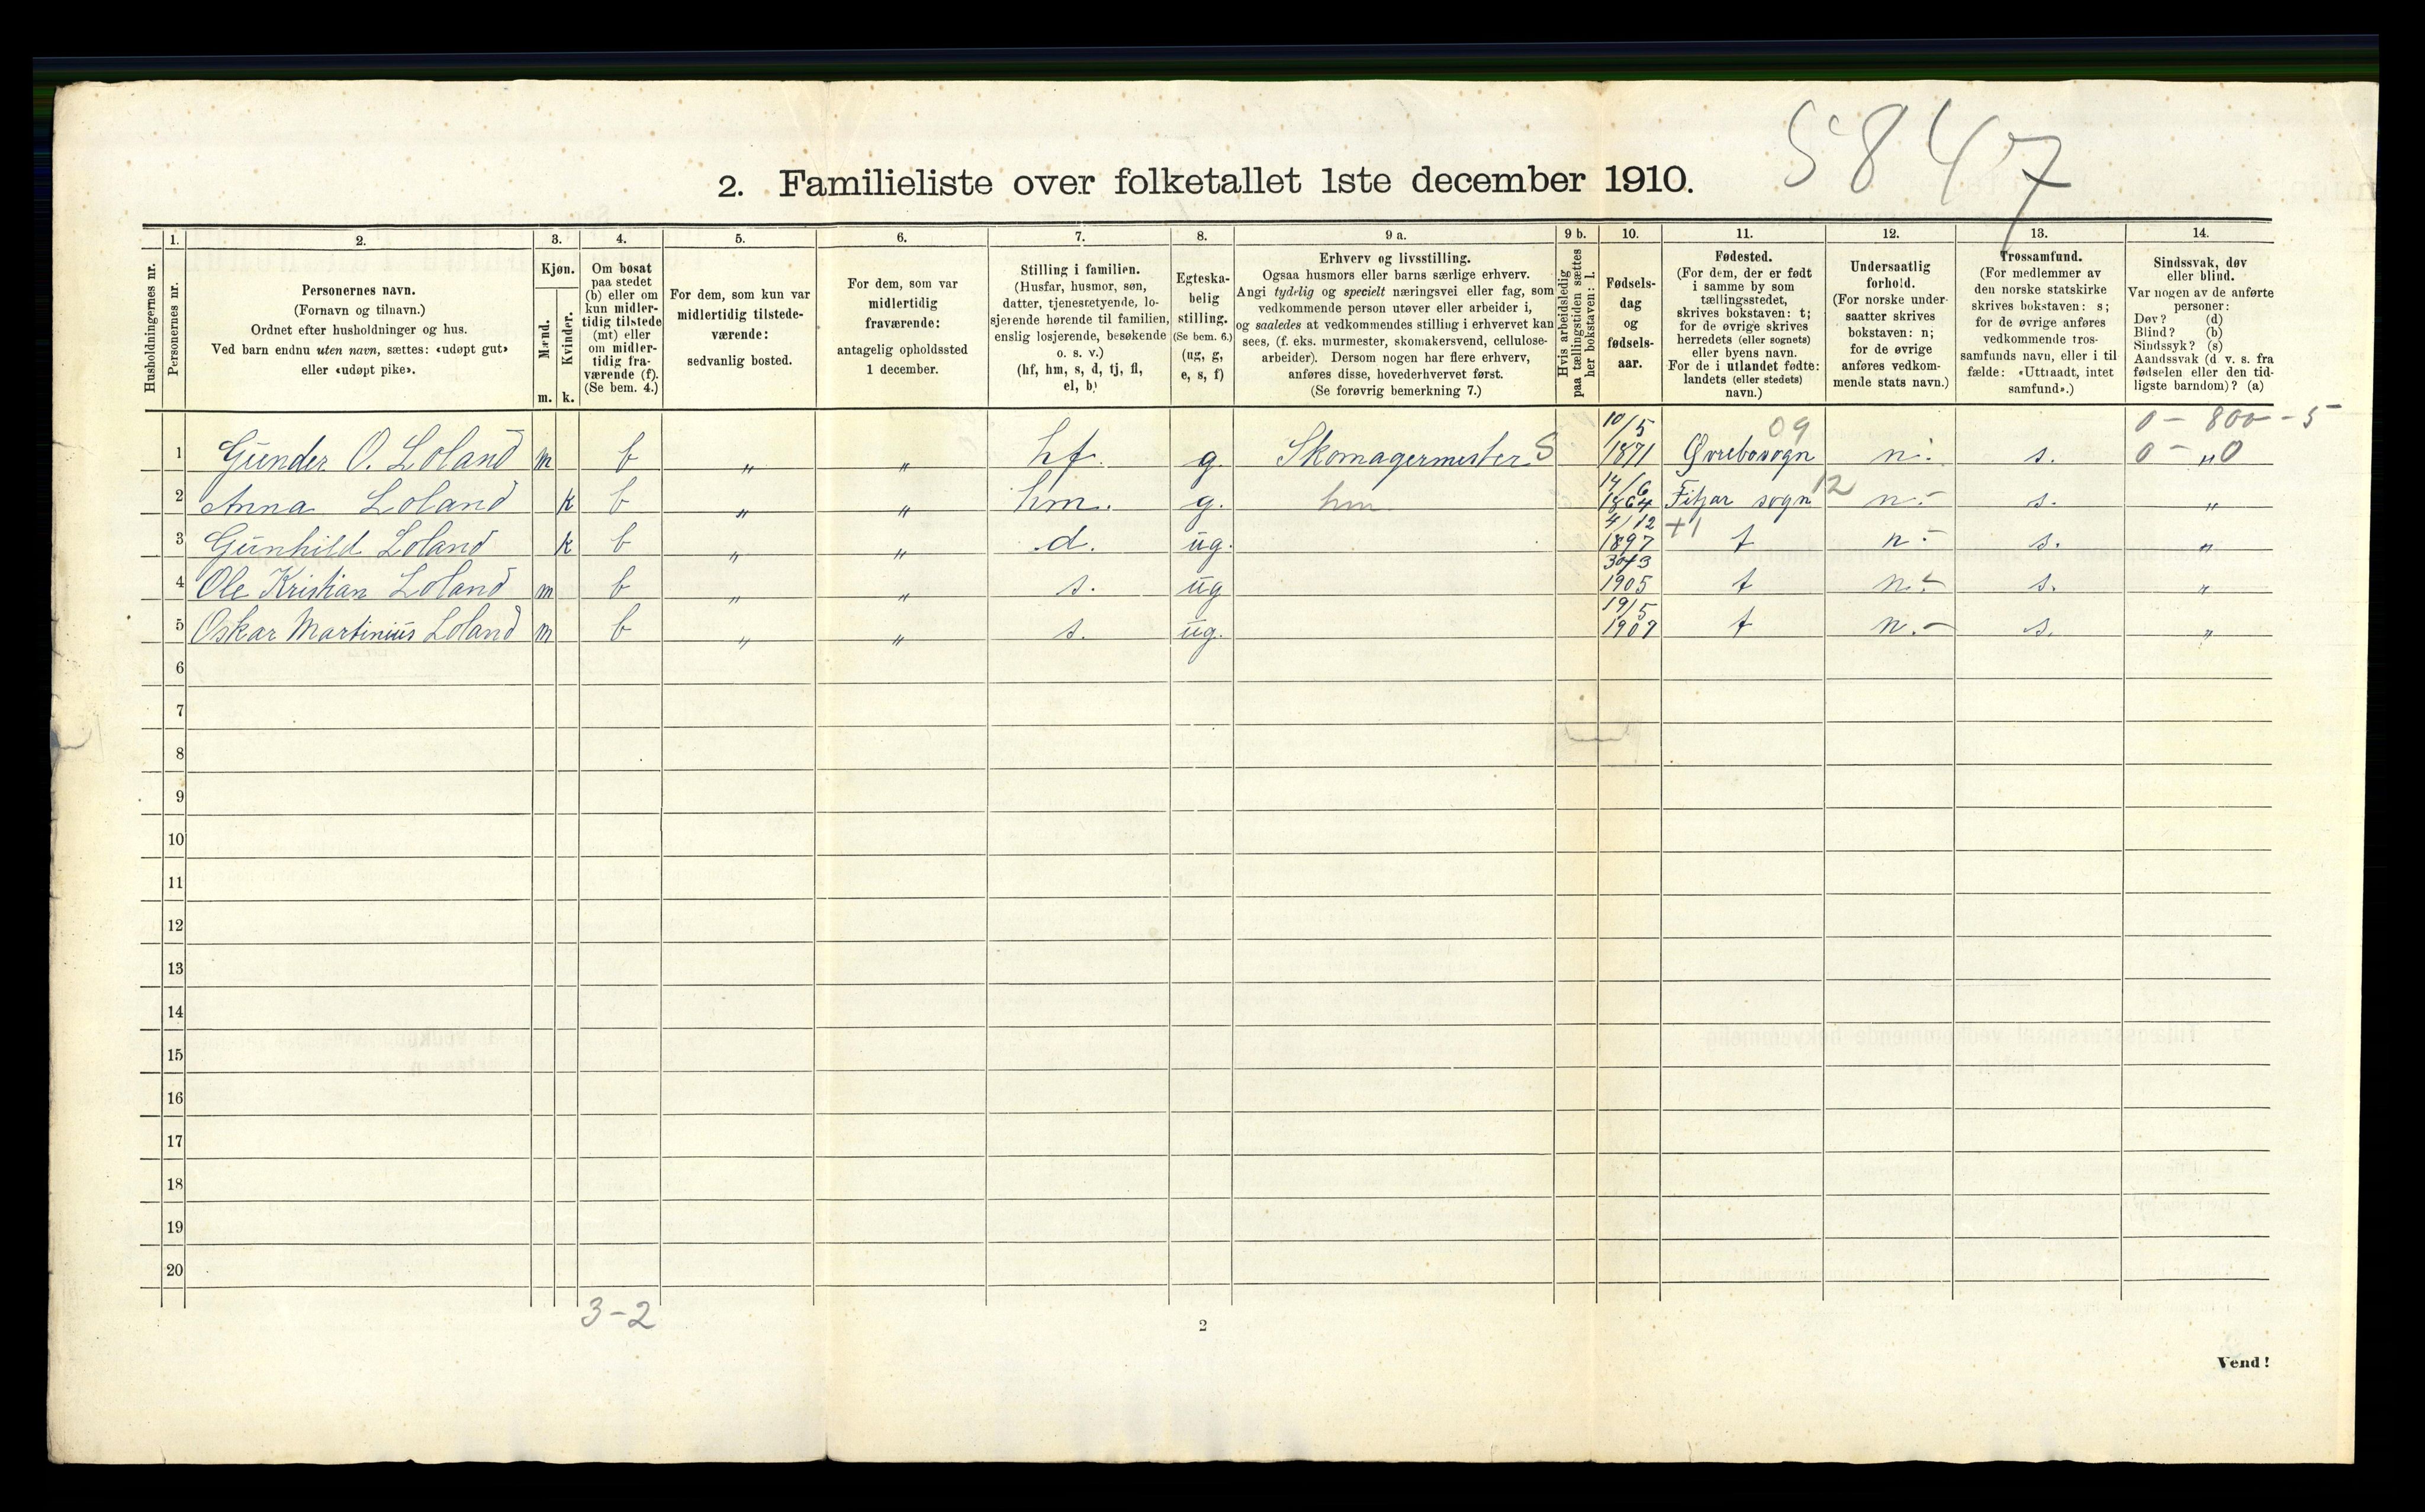 5847
2. Familieliste over folketallet 1ste december 1910.
Husholdningernes nr.
1.
Personernes nr.
2.
Personernes navn.
(Fornavn og tilnavn.)
Ordnet efter husholdninger og hus.
Ved barn endnu uten navn, sættes: «udøpt gut»
eller «udøpt pike».
3.
Kjøn.
Mænd.
m.
Kvinder.
k.
4.
Om bosat
paa stedet
(b) eller om
kun midler-
tidig tilstede
(mt) eller
om midler-
tidig fra-
værende (f).
(Se bem. 4.)
5.
For dem, som kun var
midlertidig tilstede-
værende:
sedvanlig bosted.
6.
For dem, som var
midlertidig
fraværende:
antagelig opholdssted
1 december.
7.
Stilling i familien.
(Husfar, husmor, søn,
datter, tjenestetyende, lo-
sjerende hørende til familien,
enslig losjerende, besøkende
o. s. v.)
(hf, hm, s, d, tj, fl,
el, b)
8.
Egteska-
belig
stilling.
(Se bem. 6.)
(ug, g,
e, s, f)
9 a.
Erhverv og livsstilling.
Ogsaa husmors eller barns særlige erhverv.
Angi tydelig og specielt næringsvei eller fag, som
vedkommende person utøver eller arbeider i,
og saaledes at vedkommendes stilling i erhvervet kan
sees, (f. eks. murmester, skomakersvend, cellulose-
arbeider). Dersom nogen har flere erhverv,
anføres disse, hovederhvervet først.
(Se forøvrig bemerkning 7.)
9 b.
Hvis arbeidsledig
paa tællingstiden sættes
her bokstaven: l.
10.
Fødsels-
dag
og
fødsels-
aar.
11.
Fødested.
(For dem, der er født
i samme by som
tællingsstedet,
skrives bokstaven: t;
for de øvrige skrives
herredets (eller sognets)
eller byens navn.
For de i utlandet fødte:
landets (eller stedets)
navn.)
12.
Undersaatlig
forhold.
(For norske under-
saatter skrives
bokstaven: n;
for de øvrige
anføres vedkom-
mende stats navn.)
13.
Trossamfund.
(For medlemmer av
den norske statskirke
skrives bokstaven: s;
for de øvrige anføres
vedkommende tros-
samfunds navn, eller i til-
fælde: «Uttraadt, intet
samfund».)
14.
Sindssvak, døv
eller blind.
Var nogen av de anførte
personer:
Døv? (d)
Blind? (b)
Sindssyk? (s)
Aandssvak (d. v. s. fra
fødselen eller den tid-
ligste barndom)? (a)
0 - 800 - 5
1 Gunder O. Loland m b „ „ hf. g. Skomagermester S 10/5 1871 Øvrebosogn 09 n. s. 0 - „ 0
2 Anna Loland k b „ „ hm. g. hm 14/6 1864 Fitjar sogn 12 n. s. „
3 Gunhild Loland k b „ „ d. ug. 4/12 1897 +1 t n. s. „
4 Ole Kristian Loland m b „ „ s. ug 30/3 1905 t n. s. „
5 Oskar Martinius Loland m b „ „ s. ug. 19/5 1907 t n. s. „
6
7
8
9
10
11
12
13
14
15
16
17
18
19
20
3-2
2
Vend!